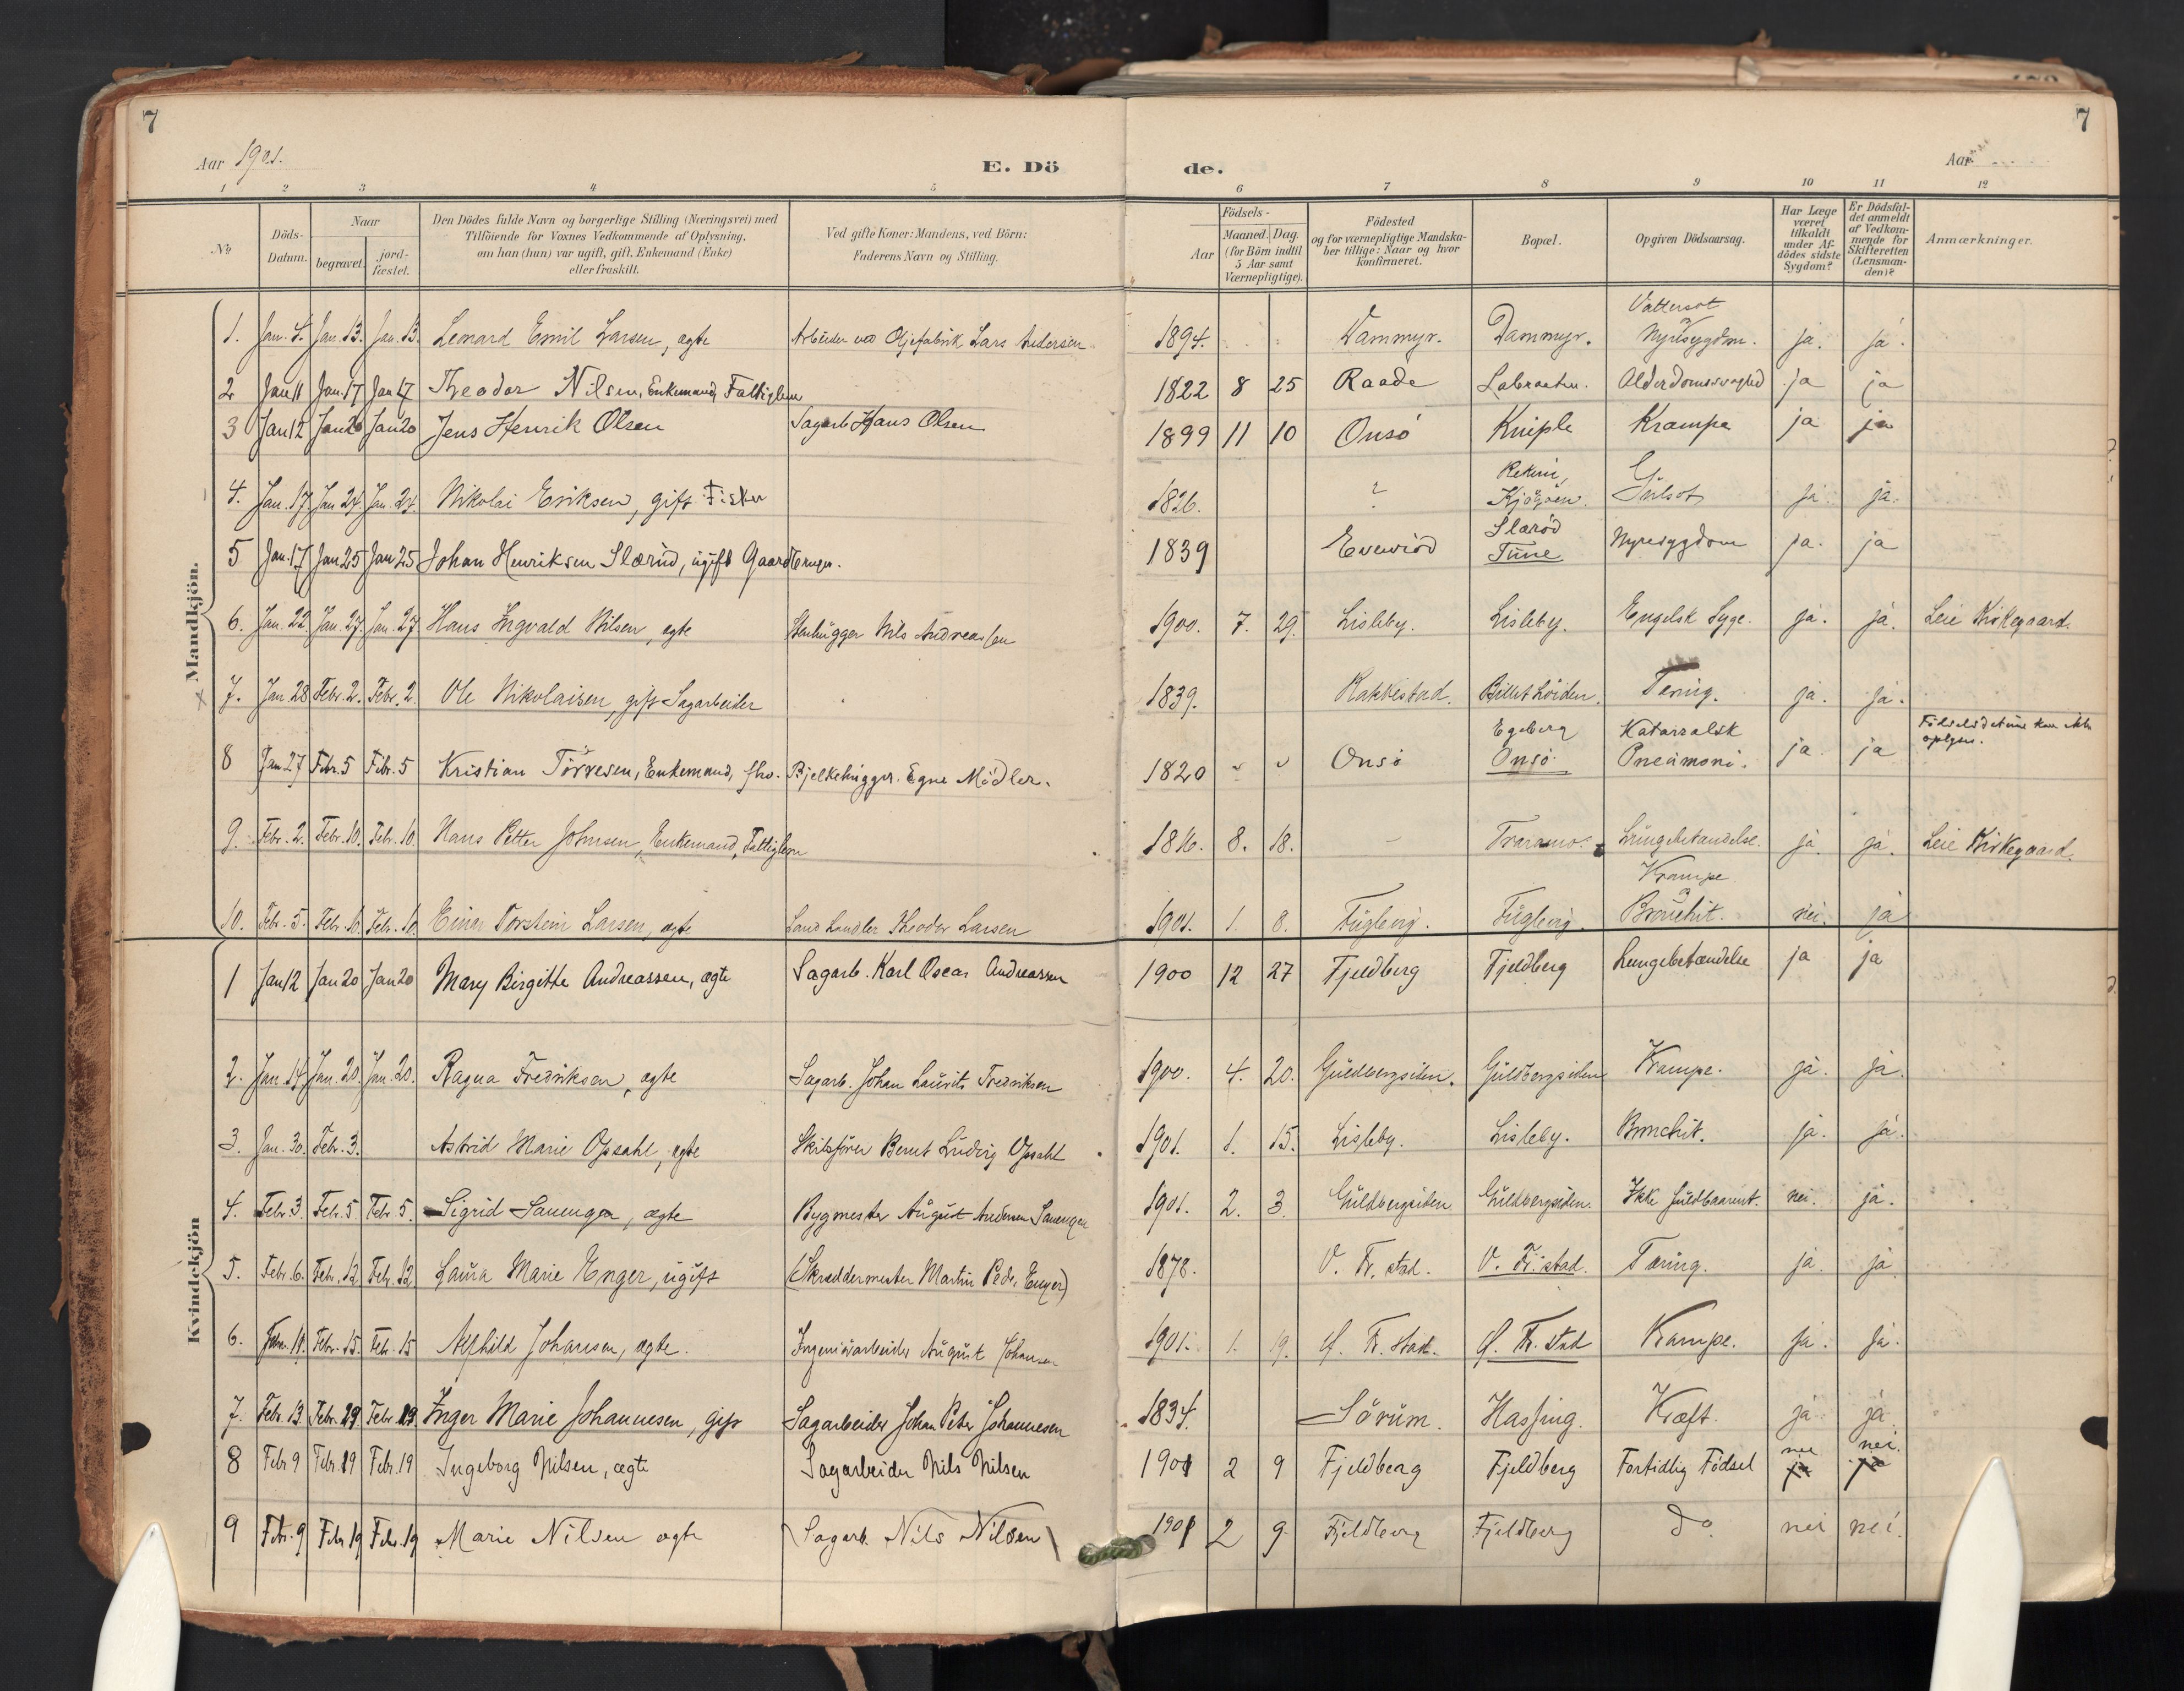 7
7
Aar 1901.
E. Dö
de.
Aar
1 2 3 4 5 6 7 8 9 10 11 12
No
Döds-Datum.
Naar
begravet.
jord-fæstet.
Den Dödes fulde Navn og borgerlige Stilling (Næringsvei) med
Tilföiende for Voxnes Vedkommende af Oplysning,
om han (hun) var ugift, gift, Enkemand (Enke)
eller fraskilt.
Ved gifte Koner: Mandens, ved Börn:
Faderens Navn og Stilling.
Födsels-
Aar
Maaned. Dag.
(for Börn indtil
5 Aar samt
Værnepligtige).
Födested
og for værnepligtige Mandska-
ber tillige: Naar og hvor
Konfirmeret.
Bopæl.
Opgiven Dödsaarsag.
Har Læge
været
tilkaldt
under Af-
dödes sidste
Sygdom?
Er Dödsfal-
det anmeldt
af Vedkom-
mende for
Skifteretten
(Lensman-
den)?
Anmærkninger.
Mandkjön.
1. Jan. 4. Jan. 13. Jan. 13. Leonard Emil Larsen, ægte Arbeider ved Oljefabrik Lars Andersen 1894. Dammyr. Dammyr. Vattersot og Nyresygdom. ja. ja.
2 Jan 11 Jan. 17 Jan 17 Theodor Nilsen, Enkemand, Fattiglem 1822 8 25 Raade Labraaten. Alderdomssvaghed ja ja
3 Jan 12 Jan 20 Jan 20 Jens Henrik Olsen Sagarb Hans Olsen 1899 11 10 Onsö Kniple Krampe ja ja
4. Jan. 17. Jan 24. Jan. 24. Nikolai Eriksen, gift Fisker 1826. ? Kjøkøen. Gulsot ja. ja.
5 Jan. 17 Jan 25 Jan 25 Johan Henriksen Slærud, ugift Gaardbruger. 1839 Enerød Slærød Tune Nyresygdom ja. ja
6. Jan. 22. Jan. 27. Jan. 27 Hans Ingvald Nilsen, ægte Stenhugger Nils Andreassen 1900. 7. 29. Lisleby. Lisleby. Engelsk Syge. ja. ja. Leie Kirkegaard.
7. Jan. 28 Febr. 2. Febr. 2 Ole Nikolaisen, gift Sagarbeider 1839. Rakkestad. Billethöiden. Tæring. ja. ja.
8 Jan 27 Febr. 5 Febr. 5 Kristian Törresen, Enkemand, fhv. Bjelkehugger. Egne Midler. 1820 Onsö Egeberg Onsö Katarralsk Pneumoni. ja. ja Födselsdatum kan ikke oplyses.
9. Febr. 2. Febr. 10. Febr. 10. Hans Petter Johnsen, Enkemand, Fattiglem 1816. 8. 18. - Traramo. Lungebetændelse. ja ja. Leie Kirkegaard.
10. Febr. 5. Febr. 10. Febr. 10. Einar Torstein Larsen, ægte Landhandler Theodor Larsen 1901. 1. 8. Fuglevig. Fuglevig. Krampe og Bronchit. nei. ja
Kvindekjön
1 Jan 12 Jan 20 Jan 20 Mary Birgitte Andreassen, ægte Sagarb. Karl Oscar Andreassen 1900 12 27 Fjeldberg Fjeldberg Lungebetændelse ja ja
2. Jan. 14. Jan. 20. Jan. 20. Ragna Fredriksen, ægte Sagarb. Johan Laurits Fredriksen 1900. 4. 20. Guldbergsiden. Guldbergsiden Krampe. ja. ja.
3. Jan. 30. Febr. 3. Astrid Marie Opsahl, ægte Skibsfører Bernt Ludvig Opsahl 1901. 1. 15. Lisleby. Lisleby. Bronchit. ja. ja.
4. Febr. 3. Febr. 5 Febr. 5. Sigrid Sauengen, ægte Bygmester August Andersen Sauengen 1901. 2. 3. Guldbergsiden. Guldbergsiden. Ikke fuldbaarent. nei. ja.
5. Febr. 6. Febr. 12 Febr. 12. Laura Marie Enger, ugift (Skræddermester Martin Peder Enger) 1878. V. Fr. stad. V. Fr. stad. Tæring. ja. ja
6. Febr. 15. Febr. 15 Alfhild Johansen, ægte. Ingeniörarbeider August Johansen 1901. 1. 19. Fr. stad. Fr. stad Krampe. ja. ja.
7. Febr. 13. Febr. 19 Febr. 19. Inger Marie Johannesen, gift Sagarbeider Johan Peter Johannesen 1834. Sörum. Hassing. Kræft. ja. ja
8 Febr 9 Febr. 19 Febr. 19 Ingeborg Nilsen, ægte Sagarbeider Nils Nilsen 1901 2 9 Fjeldberg Fjeldberg Fortidlig Födsel nei nei.
9 Febr. 9 Febr 19 Febr. 19 Marie Nilsen ægte Sagarb. Nils Nilsen 1901 2 9 Fjeldberg Fjeldberg do nei nei.